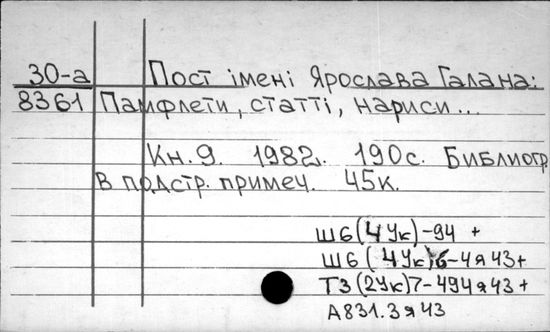 30-а Пост імені Ярослава Галана:
8361 Памфлети, статті, нариси...
Кн.9. 1982. 190с. Библиогр.
в подстр. примеч. 45к.
Ш6(4Ук)-94 +
Ш6(4Ук)6-4я43+
Т3(2Ук)7-494я43+
А831.3я43